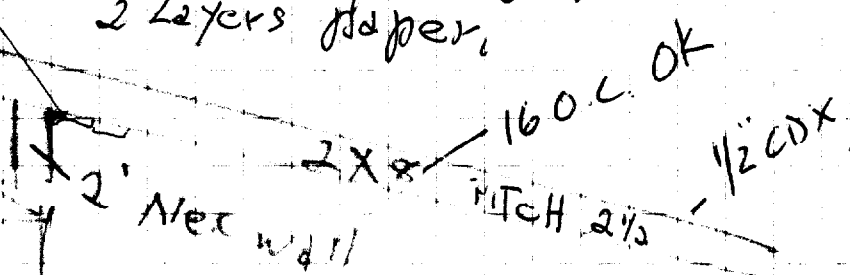 2 Layers Paper,
16 O.C. OK
2 X 8
1/2" CDX
2'
PITCH 2 1/2
wall